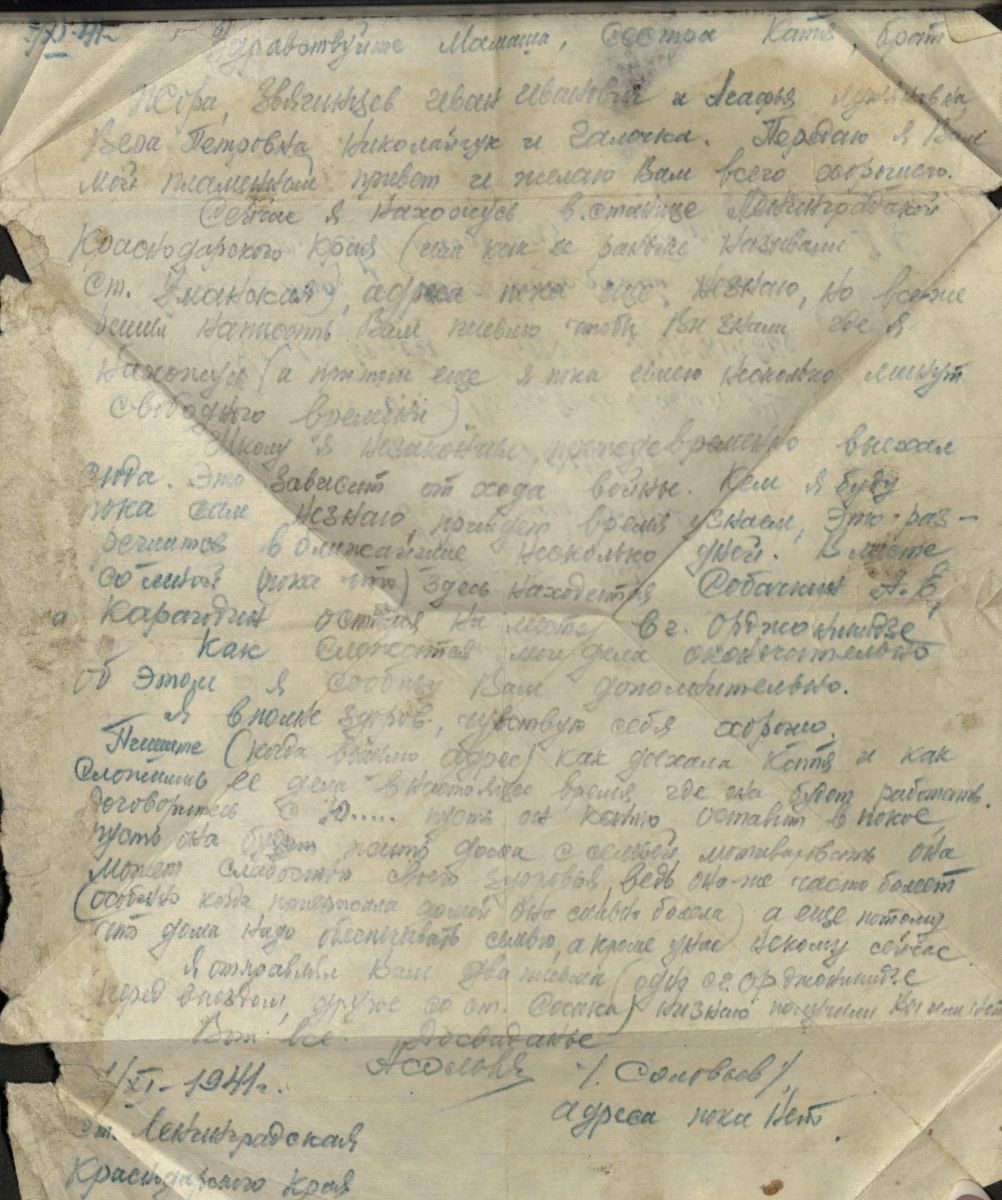 Здравствуйте Мамаша, сестра Катя, брат
Жора, Звягинцев Иван Иванович и Агафья
Вера Петровна Николайчук и Галочка. Передаю я Вам
мой пламенный привет и желаю Вам всего хорошего.
Сейчас я нахожусь в станице Ленинградской
Краснодарского Края (или как её раньше называли
ст. Уманская), адреса пока еще незнаю, но все-же
решил написать Вам письмо чтобы Вы знали где я
нахожусь (и притом еще я пока имею несколько минут
свободного времени).
Школу я незакончил, выехал
сюда. Это зависит от хода войны. Кем я буду
пока сам незнаю, пройдет время узнаем, это раз-
решится в ближайшие несколько дней. Вместе
со мной (пока что) здесь находется Собачкин А.Е,
а Карагодин остался на месте в г. Орджоникидзе
Как сложатся мои дела окончательно
об этом я сообщу Вам дополнительно.
Я вполне здоров, чувствую себя хорошо.
Пишите (когда вышлю адрес) как доехала Катя и как
сложились ее дела в настоящее время где она будет работать.
Договоритесь с Ю..... пусть он Катю оставит в покое,
пусть она будет жить дома с семьей, мотивировать она
может слабостью своего здоровья, ведь она-же часто болеет
(особенно когда приезжала домой она сильно болела) а еще потому
что дома надо обеспечивать семью, а кроме у нас некому сейчас
Я отправлял Вам два письма (одно с г. Орджоникидзе
перед выездом, другое со ст. Сосыка) незнаю получили Вы или нет
Вот все. Досвиданье
/. Соловьев /.
1/XI-1941г.
адреса пока нет.
ст. Ленинградская
Краснодарского края